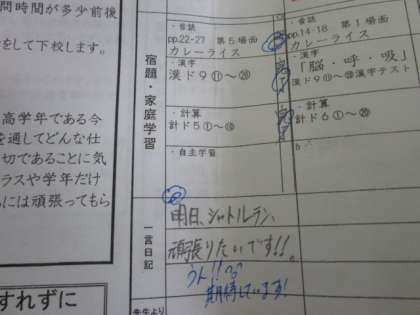 問時間が多少前後
をして下校します。
高学年である今
を通してどんな仕
切であることに気
ラスや学年だけ
には頑張ってもら
すれずに
宿題・家庭学習
・音読
pp.22-27 第5場面
カレーライス
・漢字
漢ド9⑪~⑳
・計算
計ド5①~⑩
・自主学習
・音読
pp.14-18 第1場面
カレーライス
・漢字
「脳・呼・吸」
漢ド9⑪~⑳漢字テスト
・計算
計ド6①~⑳
一言日記
明日、シャトルラン、
頑張りたいです!!。
ウン!!
期待しています!
先生より